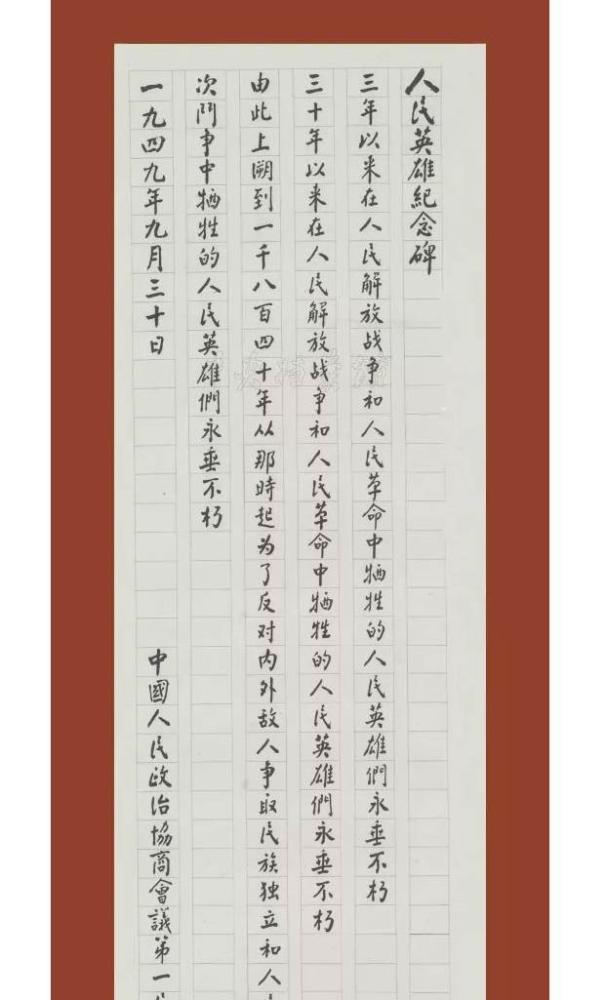 人民英雄紀念碑
三年以来在人民解放战争和人民革命中牺牲的人民英雄們永垂不朽
三十年以来在人民解放战争和人民革命中牺牲的人民英雄們永垂不朽
由此上溯到一千八百四十年从那時起为了反对内外敌人争取民族独立和人
次鬥争中牺牲的人民英雄們永垂不朽
一九四九年九月三十日
中國人民政治協商會議第一